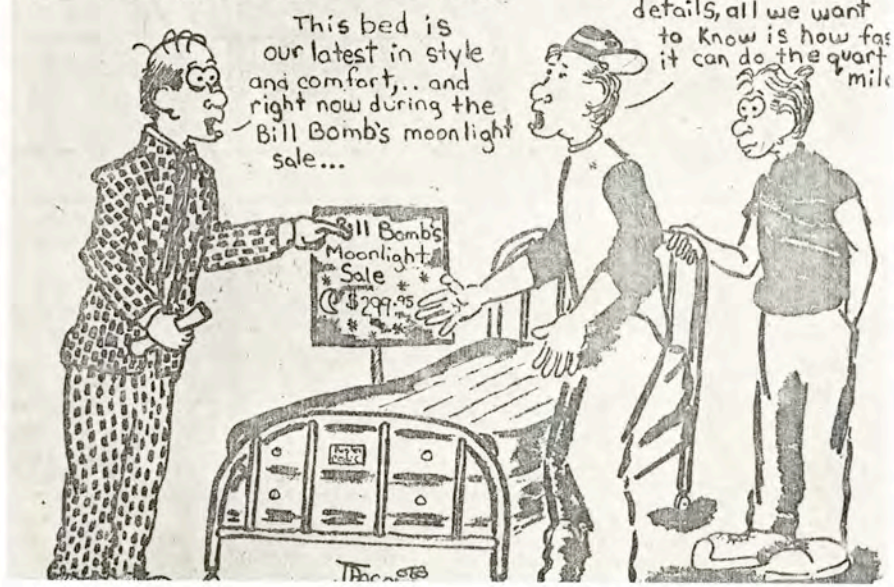 This bed is
our latest in style
and comfort,.. and
right now during the
Bill Bomb's moonlight
sale...
details, all we want
to know is how fas
it can do the quart
mile
Bill Bomb's
Moonlight
Sale
$299.95